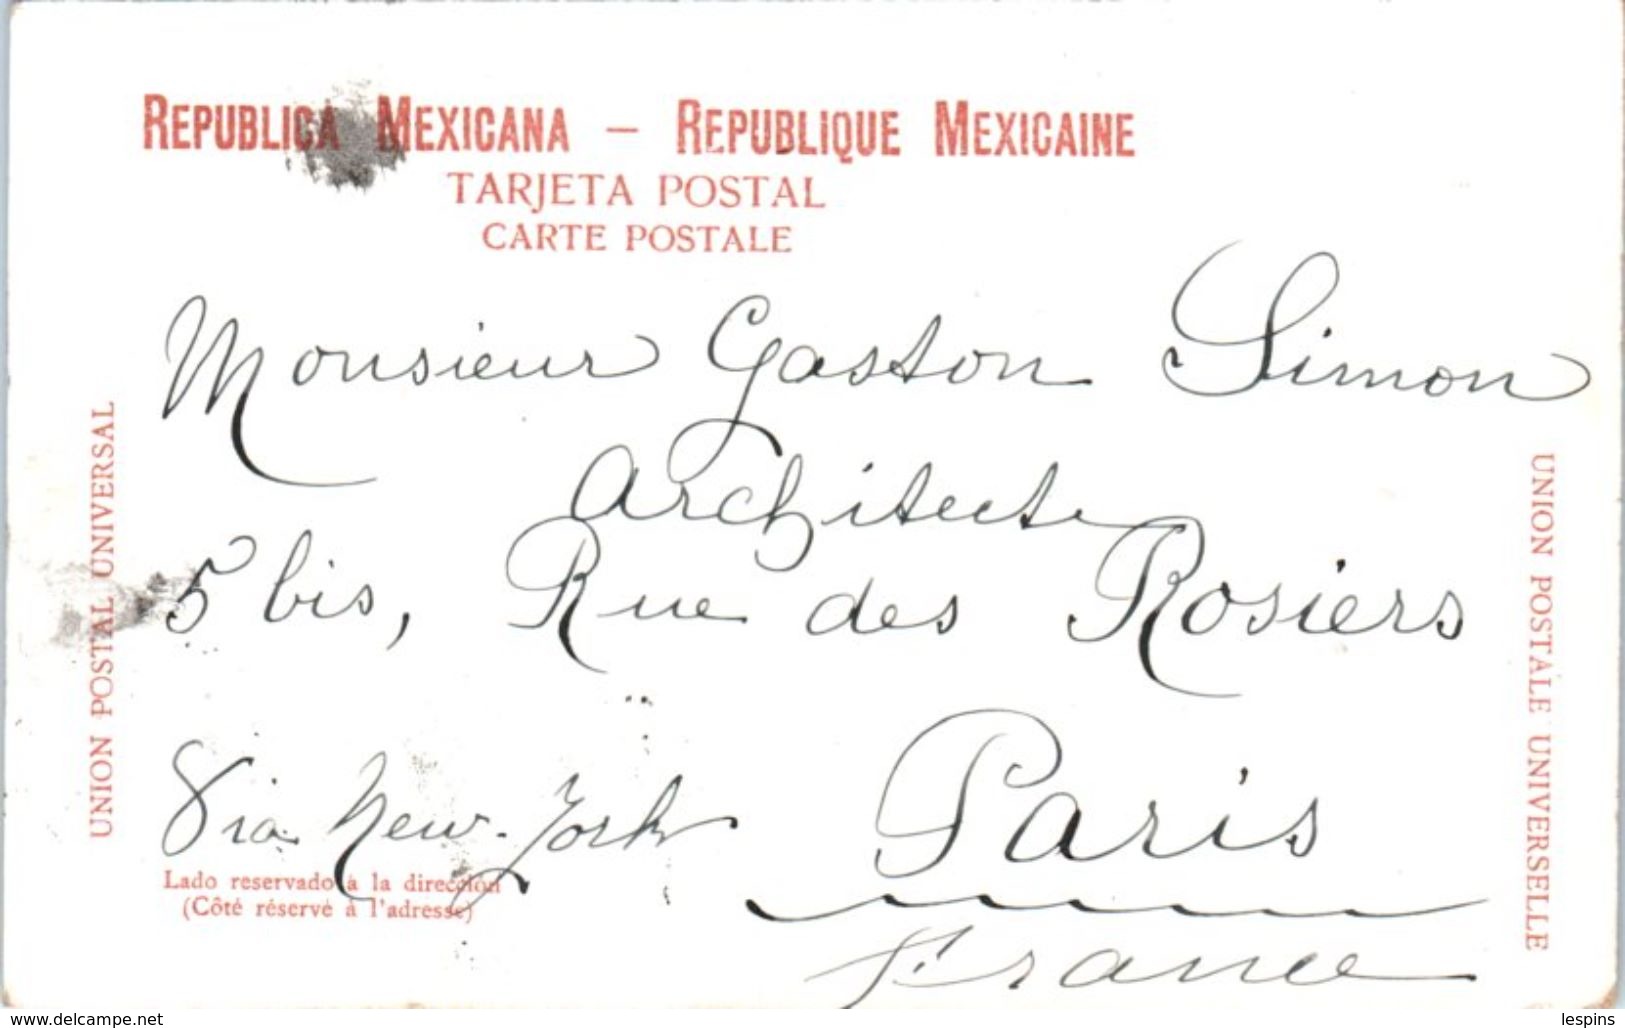 REPUBLICA MEXICANA — REPUBLIQUE MEXICAINE
TARJETA POSTAL
CARTE POSTALE
UNION POSTAL UNIVERSAL
Monsieur Gaston Simon
Architecte
5 bis, Rue des Rosiers
Via New-York
Paris
France
Lado reservado à la dirección
(Côté réservé à l'adresse)
UNION POSTALE UNIVERSELLE
delcampe.net
lespins